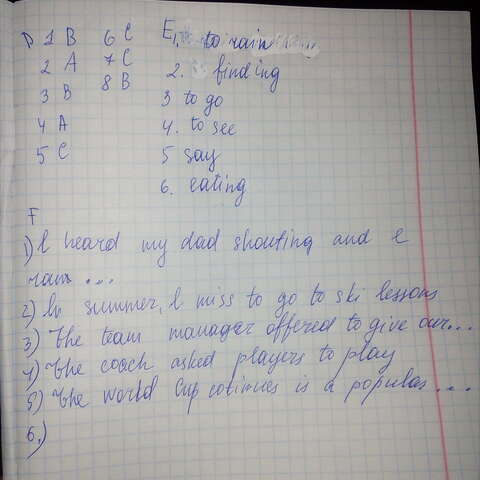 D 1 B 6 C E 1. to rain
2 A 7 C 2. finding
3 B 8 B 3 to go
4 A 4. to see
5 C 5 say
6. eating
F
1) I heard my dad shouting and I
ran ....
2) In summer, I miss to go to ski lessons
3) The team manager offered to give our...
4) The coach asked players to play
5) The world Cup cotinues is a populas ....
6.)